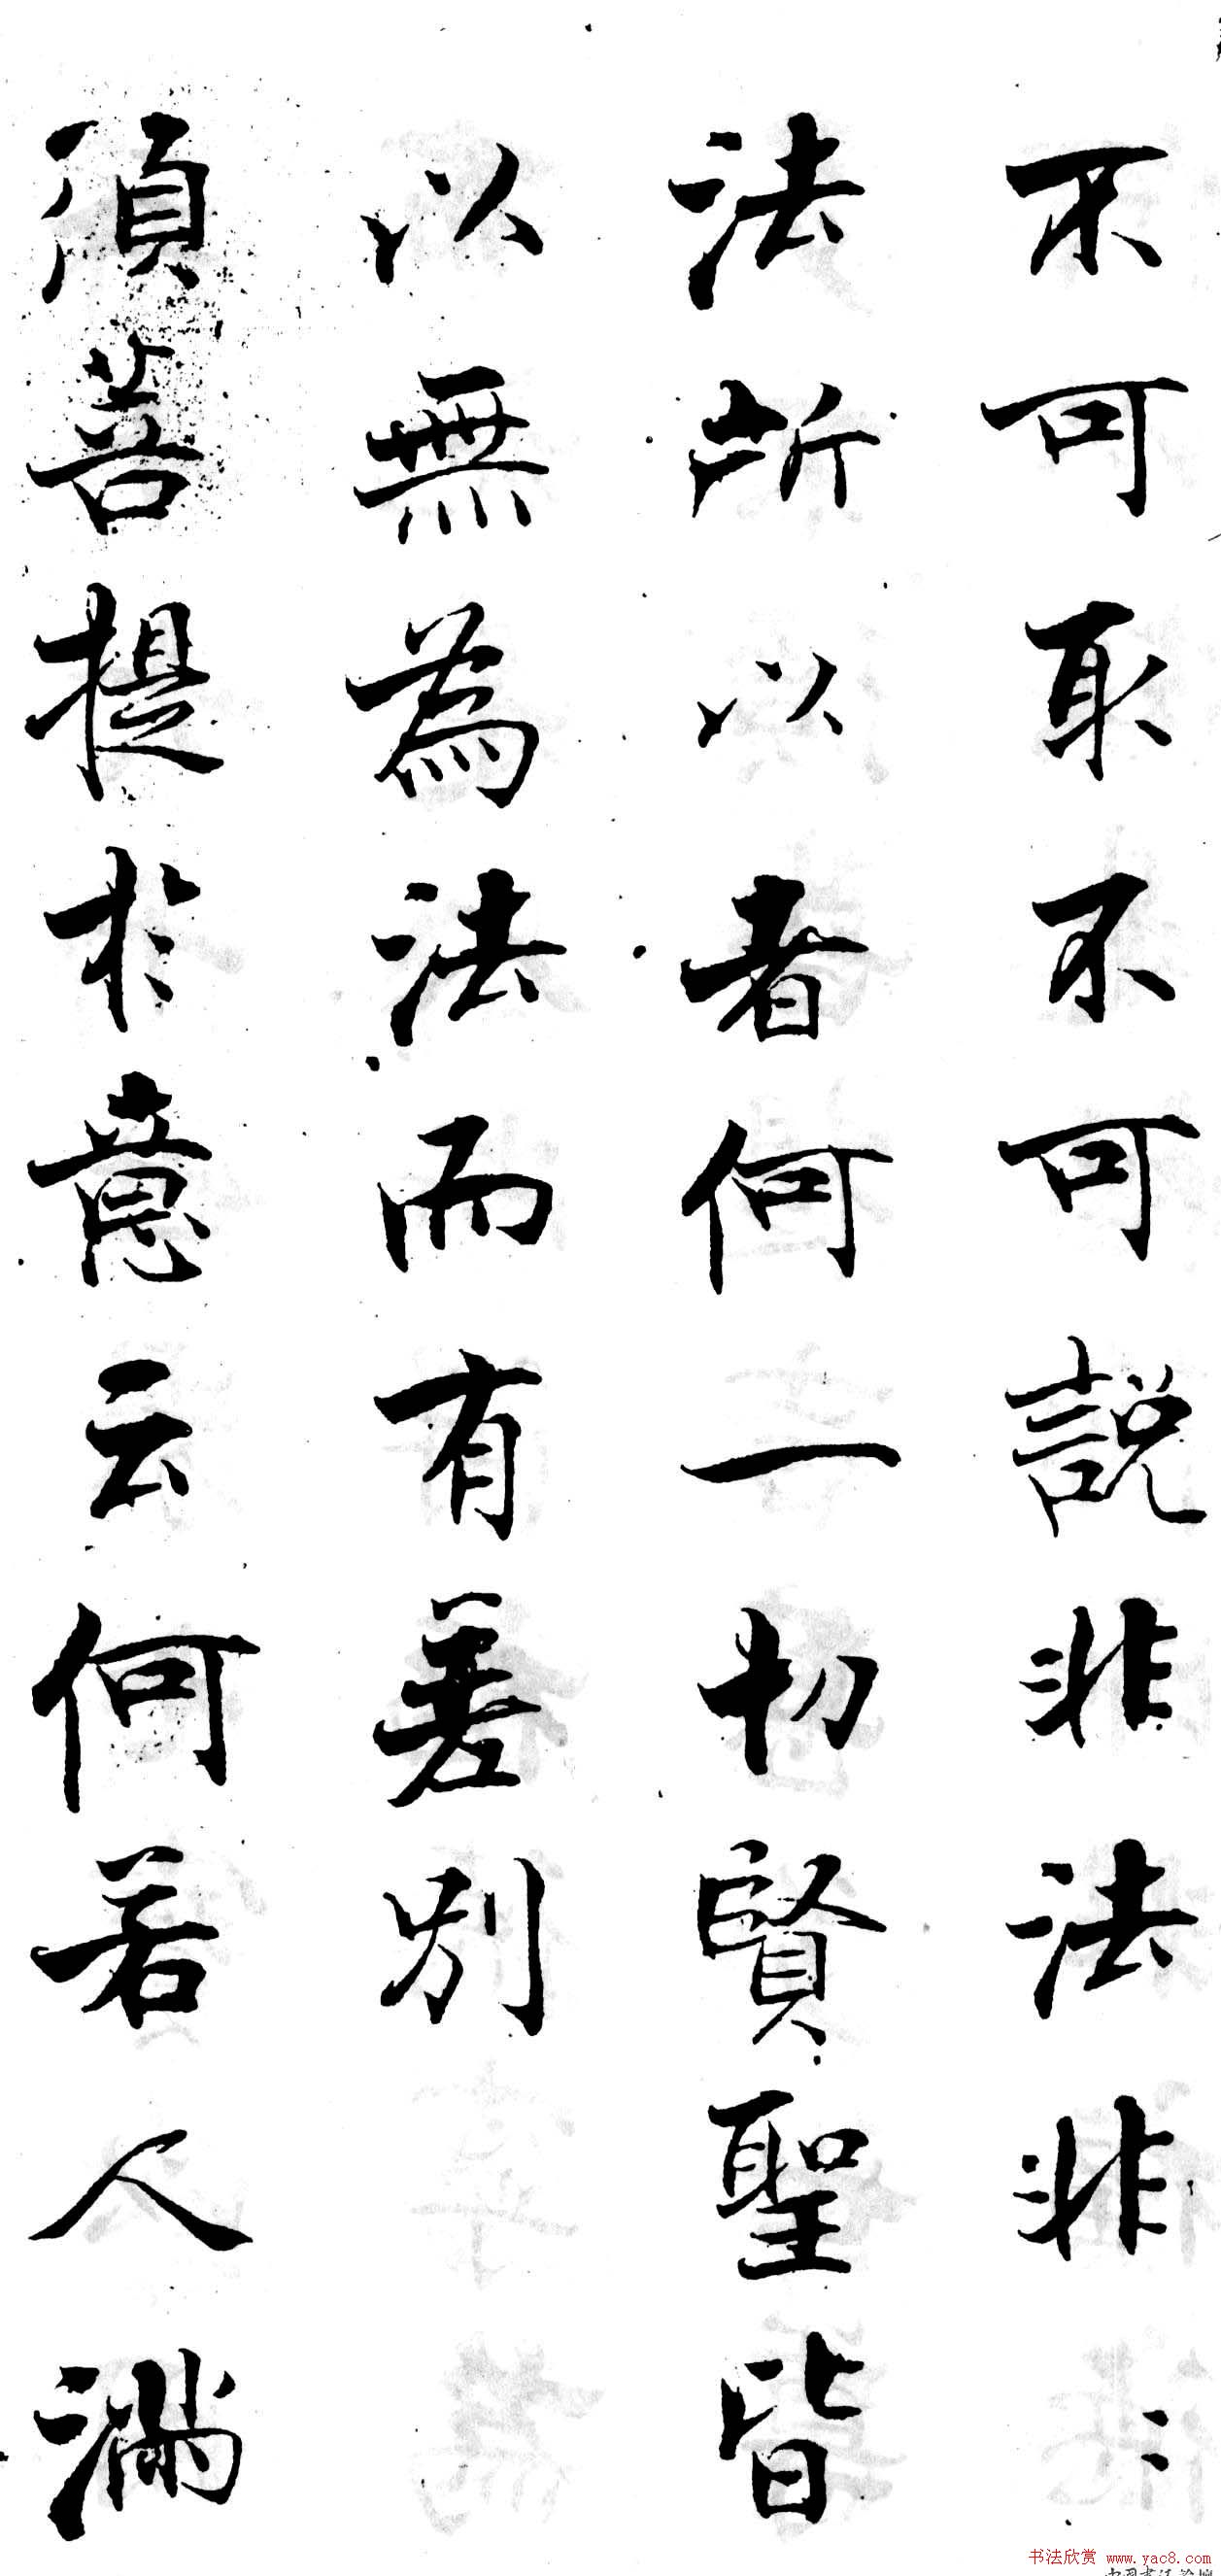 不可取不可說非法非〻
法所以者何一切賢聖皆
以無為法而有差別
須菩提於意云何若人滿
书法欣赏 www.yac8.com